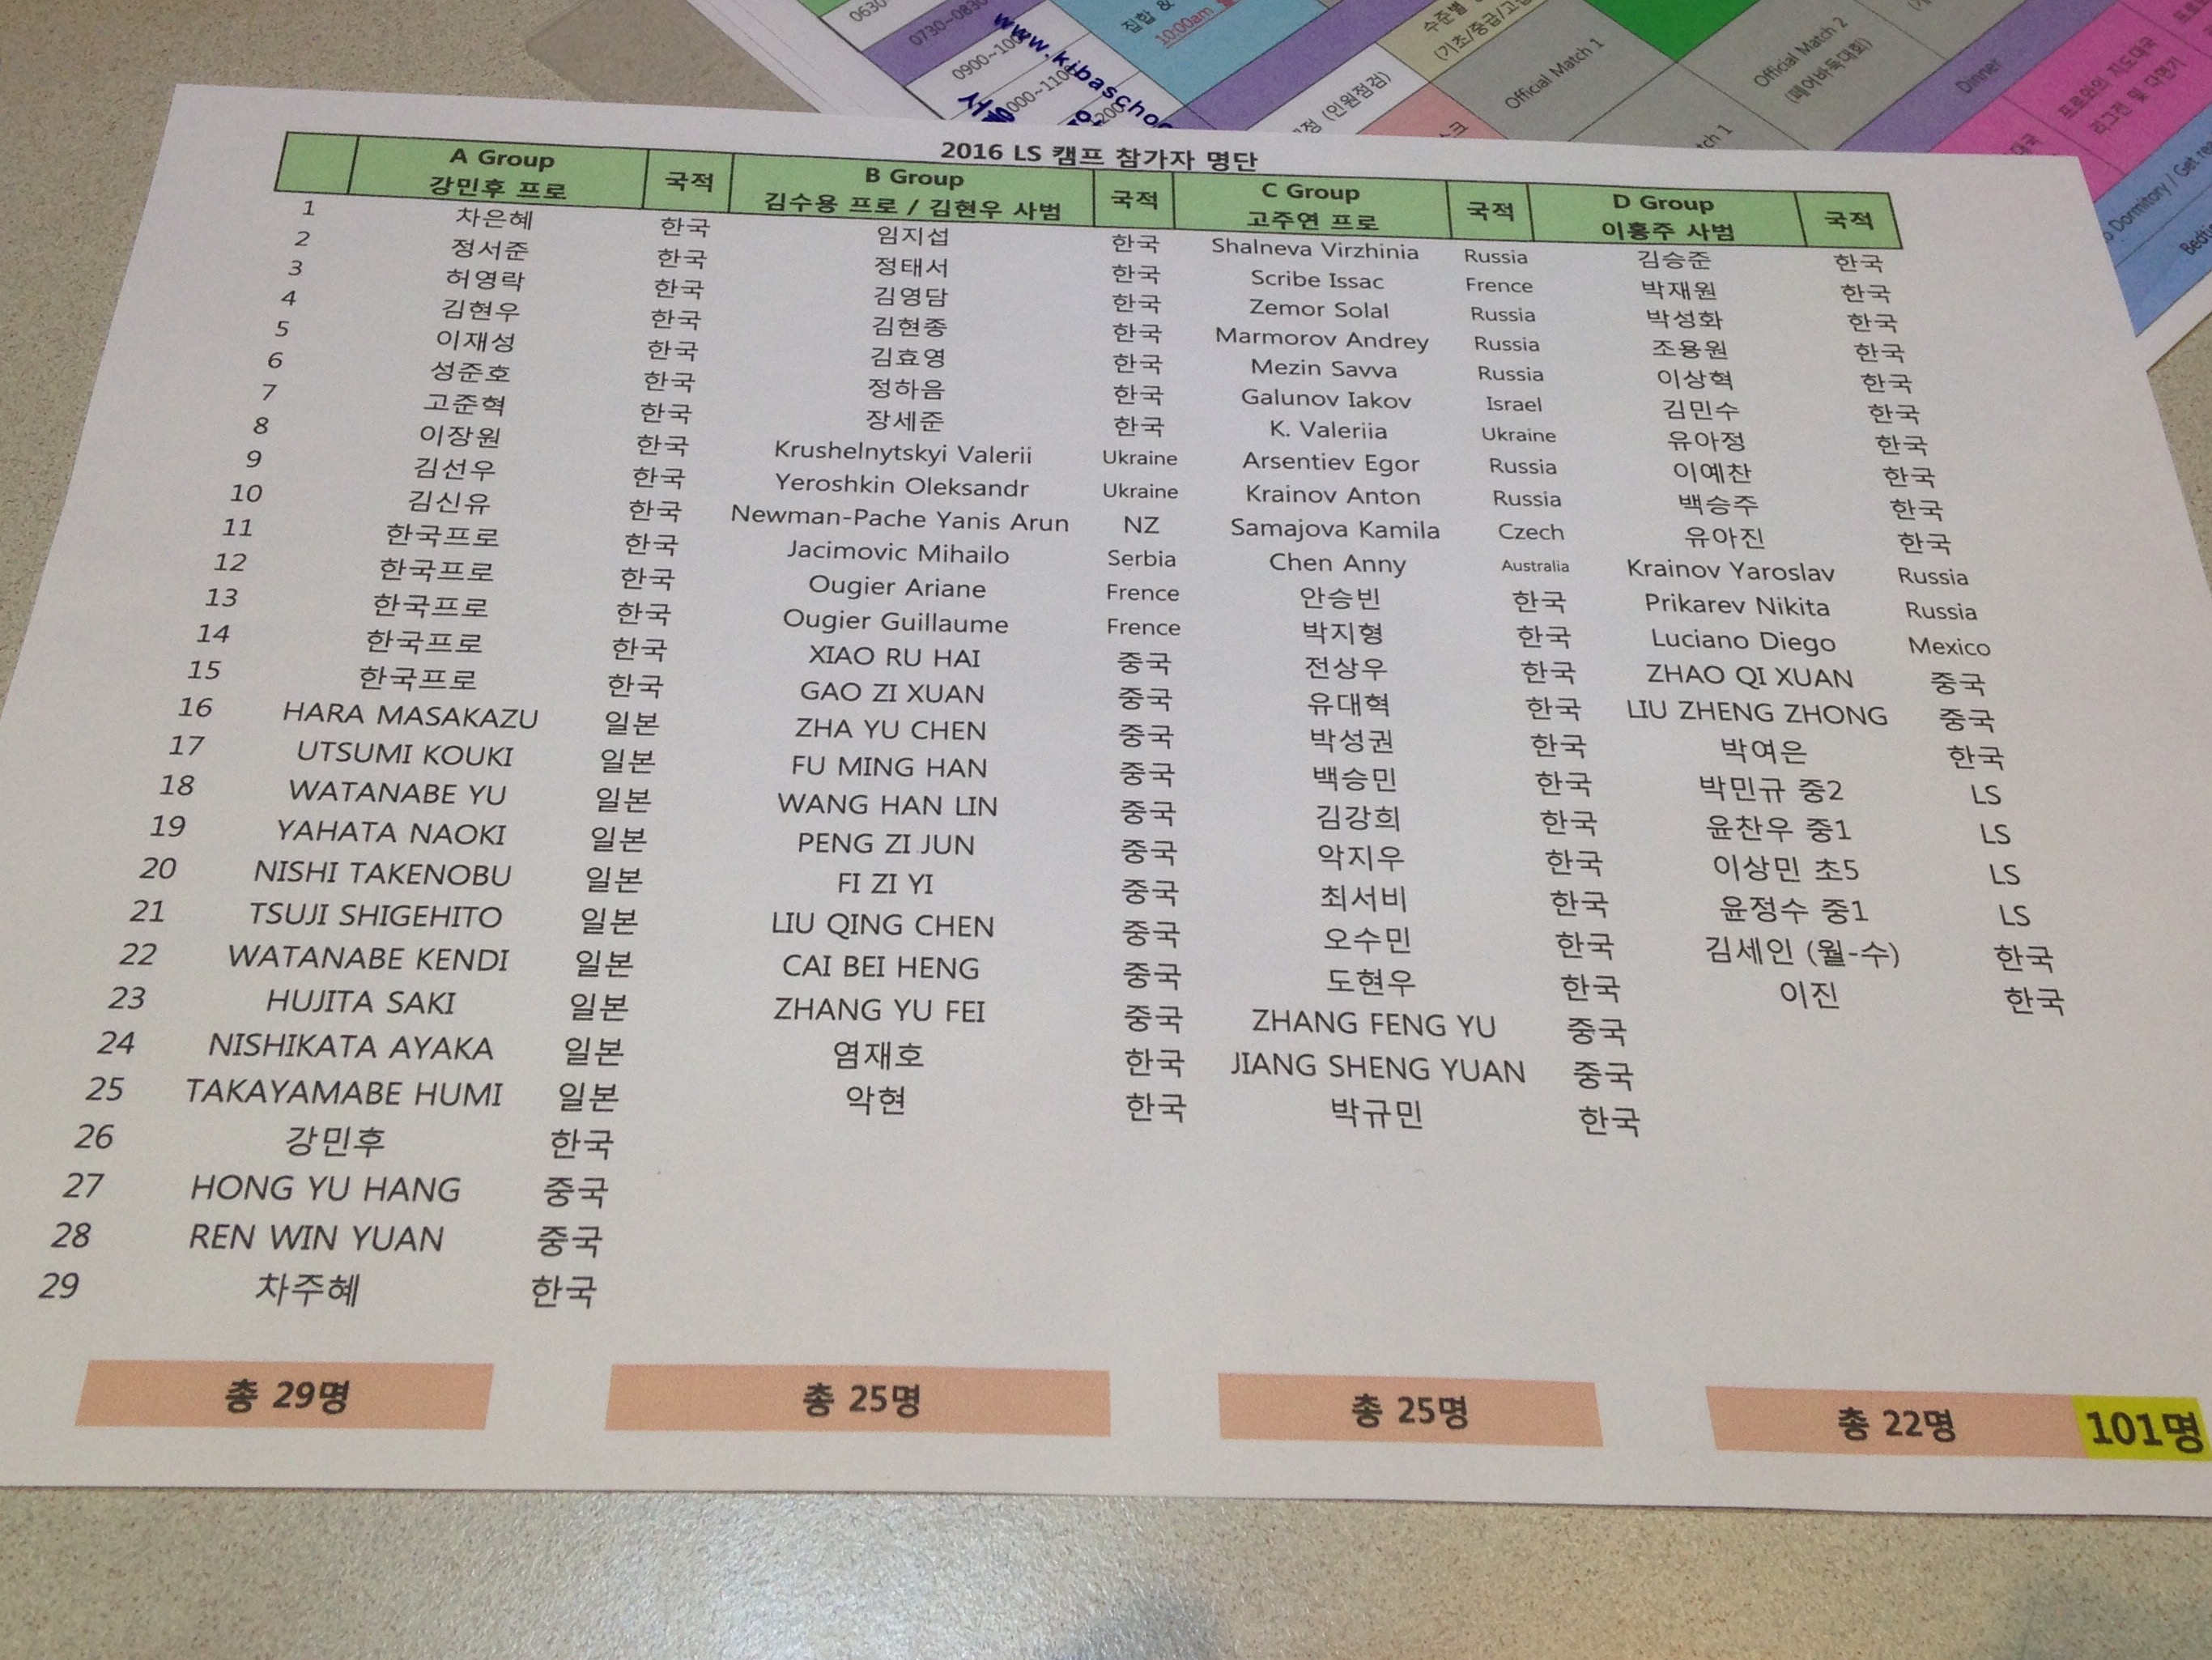 0630~
0730~0830
0900~100
1000~1100
집합 &
10:00am
www.kibaschoo
(기초/중급/고급
(인원점검)
Official Match 1
Official Match 2
(페어바둑대회)
Dinner
프로와의 지도대국
리그전 및 다면기
Dormitory / Get rea
2016 LS 캠프 참가자 명단
A Group 국적 B Group 국적 C Group 국적 D Group 국적
강민후 프로 김수용 프로 / 김현우 사범 고주연 프로 이홍주 사범
1 차은혜 한국 임지섭 한국 Shalneva Virzhinia Russia 김승준 한국
2 정서준 한국 정태서 한국 Scribe Issac Frence 박재원 한국
3 허영락 한국 김영담 한국 Zemor Solal Russia 박성화 한국
4 김현우 한국 김현종 한국 Marmorov Andrey Russia 조용원 한국
5 이재성 한국 김효영 한국 Mezin Savva Russia 이상혁 한국
6 성준호 한국 정하음 한국 Galunov Iakov Israel 김민수 한국
7 고준혁 한국 장세준 한국 K. Valeriia Ukraine 유아정 한국
8 이장원 한국 Krushelnytskyi Valerii Ukraine Arsentiev Egor Russia 이예찬 한국
9 김선우 한국 Yeroshkin Oleksandr Ukraine Krainov Anton Russia 백승주 한국
10 김신유 한국 Newman-Pache Yanis Arun NZ Samajova Kamila Czech 유아진 한국
11 한국프로 한국 Jacimovic Mihailo Serbia Chen Anny Australia Krainov Yaroslav Russia
12 한국프로 한국 Ougier Ariane Frence 안승빈 한국 Prikarev Nikita Russia
13 한국프로 한국 Ougier Guillaume Frence 박지형 한국 Luciano Diego Mexico
14 한국프로 한국 XIAO RU HAI 중국 전상우 한국 ZHAO QI XUAN 중국
15 한국프로 한국 GAO ZI XUAN 중국 유대혁 한국 LIU ZHENG ZHONG 중국
16 HARA MASAKAZU 일본 ZHA YU CHEN 중국 박성권 한국 박여은 한국
17 UTSUMI KOUKI 일본 FU MING HAN 중국 백승민 한국 박민규 중2 LS
18 WATANABE YU 일본 WANG HAN LIN 중국 김강희 한국 윤찬우 중1 LS
19 YAHATA NAOKI 일본 PENG ZI JUN 중국 악지우 한국 이상민 초5 LS
20 NISHI TAKENOBU 일본 FI ZI YI 중국 최서비 한국 윤정수 중1 LS
21 TSUJI SHIGEHITO 일본 LIU QING CHEN 중국 오수민 한국 김세인 (월-수) 한국
22 WATANABE KENDI 일본 CAI BEI HENG 중국 도현우 한국 이진 한국
23 HUJITA SAKI 일본 ZHANG YU FEI 중국 ZHANG FENG YU 중국
24 NISHIKATA AYAKA 일본 염재호 한국 JIANG SHENG YUAN 중국
25 TAKAYAMABE HUMI 일본 악현 한국 박규민 한국
26 강민후 한국
27 HONG YU HANG 중국
28 REN WIN YUAN 중국
29 차주혜 한국
총 29명 총 25명 총 25명 총 22명 101명